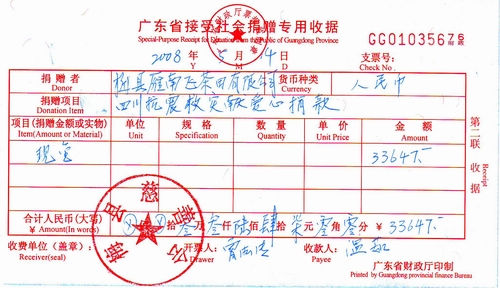 广东省接受社会捐赠专用收据
Special-Purpose Receipt for Donation from the Public of Guangdong Province
GG01035676
2008 Y 5 M 14 D
支票号:
Check No.
捐赠者 梅县雁南飞茶田有限公司 货币种类 人民币
Donor Currency
捐赠项目 四川抗震救灾献爱心捐款
Donation Item
项目(捐赠金额或实物) 单位 规格 数量 单价 金额
Item(Amount or Material) Unit Specification Quantity Unit Price Amount
现金 33647.-
第二联 收据
Receipt
合计人民币(大写) 拾叁万叁仟陆佰肆拾柒元零角零分 ¥ 33647.-
¥ Amount(In words)
收费单位(盖章): 开票人: 收款人:
Receiver(seal) Drawer Payee
广东省财政厅印制
Printed by Guangdong provincial finance Bureau
梅县慈善会